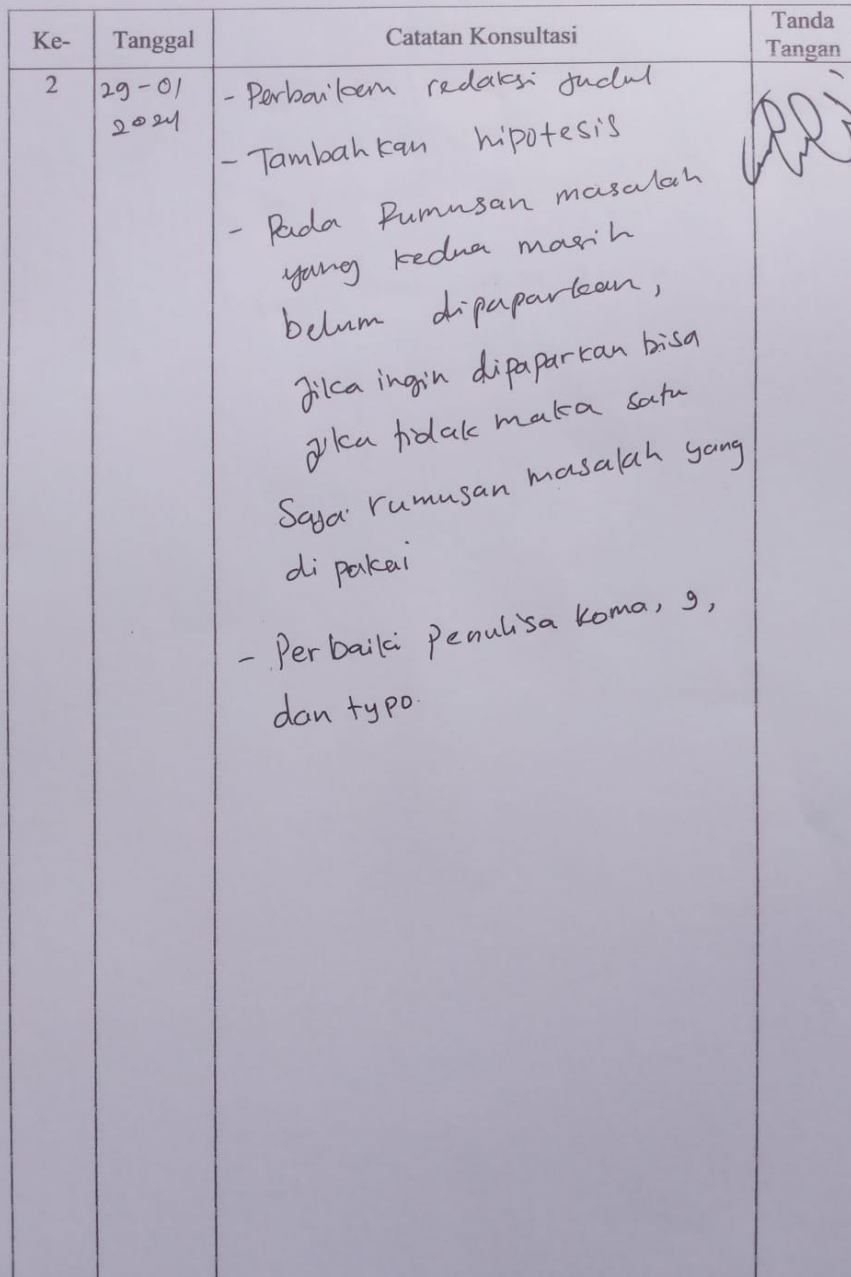 Ke- Tanggal Catatan Konsultasi Tanda Tangan
2 29-01 2024
- Perbaikan redaksi judul
- Tambahkan hipotesis
- Pada Rumusan masalah
yang kedua masih
belum dipaparkan,
Jika ingin dipaparkan bisa
jika tidak maka satu
Saja rumusan masalah yang
di pakai
- Perbaiki Penulisa koma, 9,
dan typo.